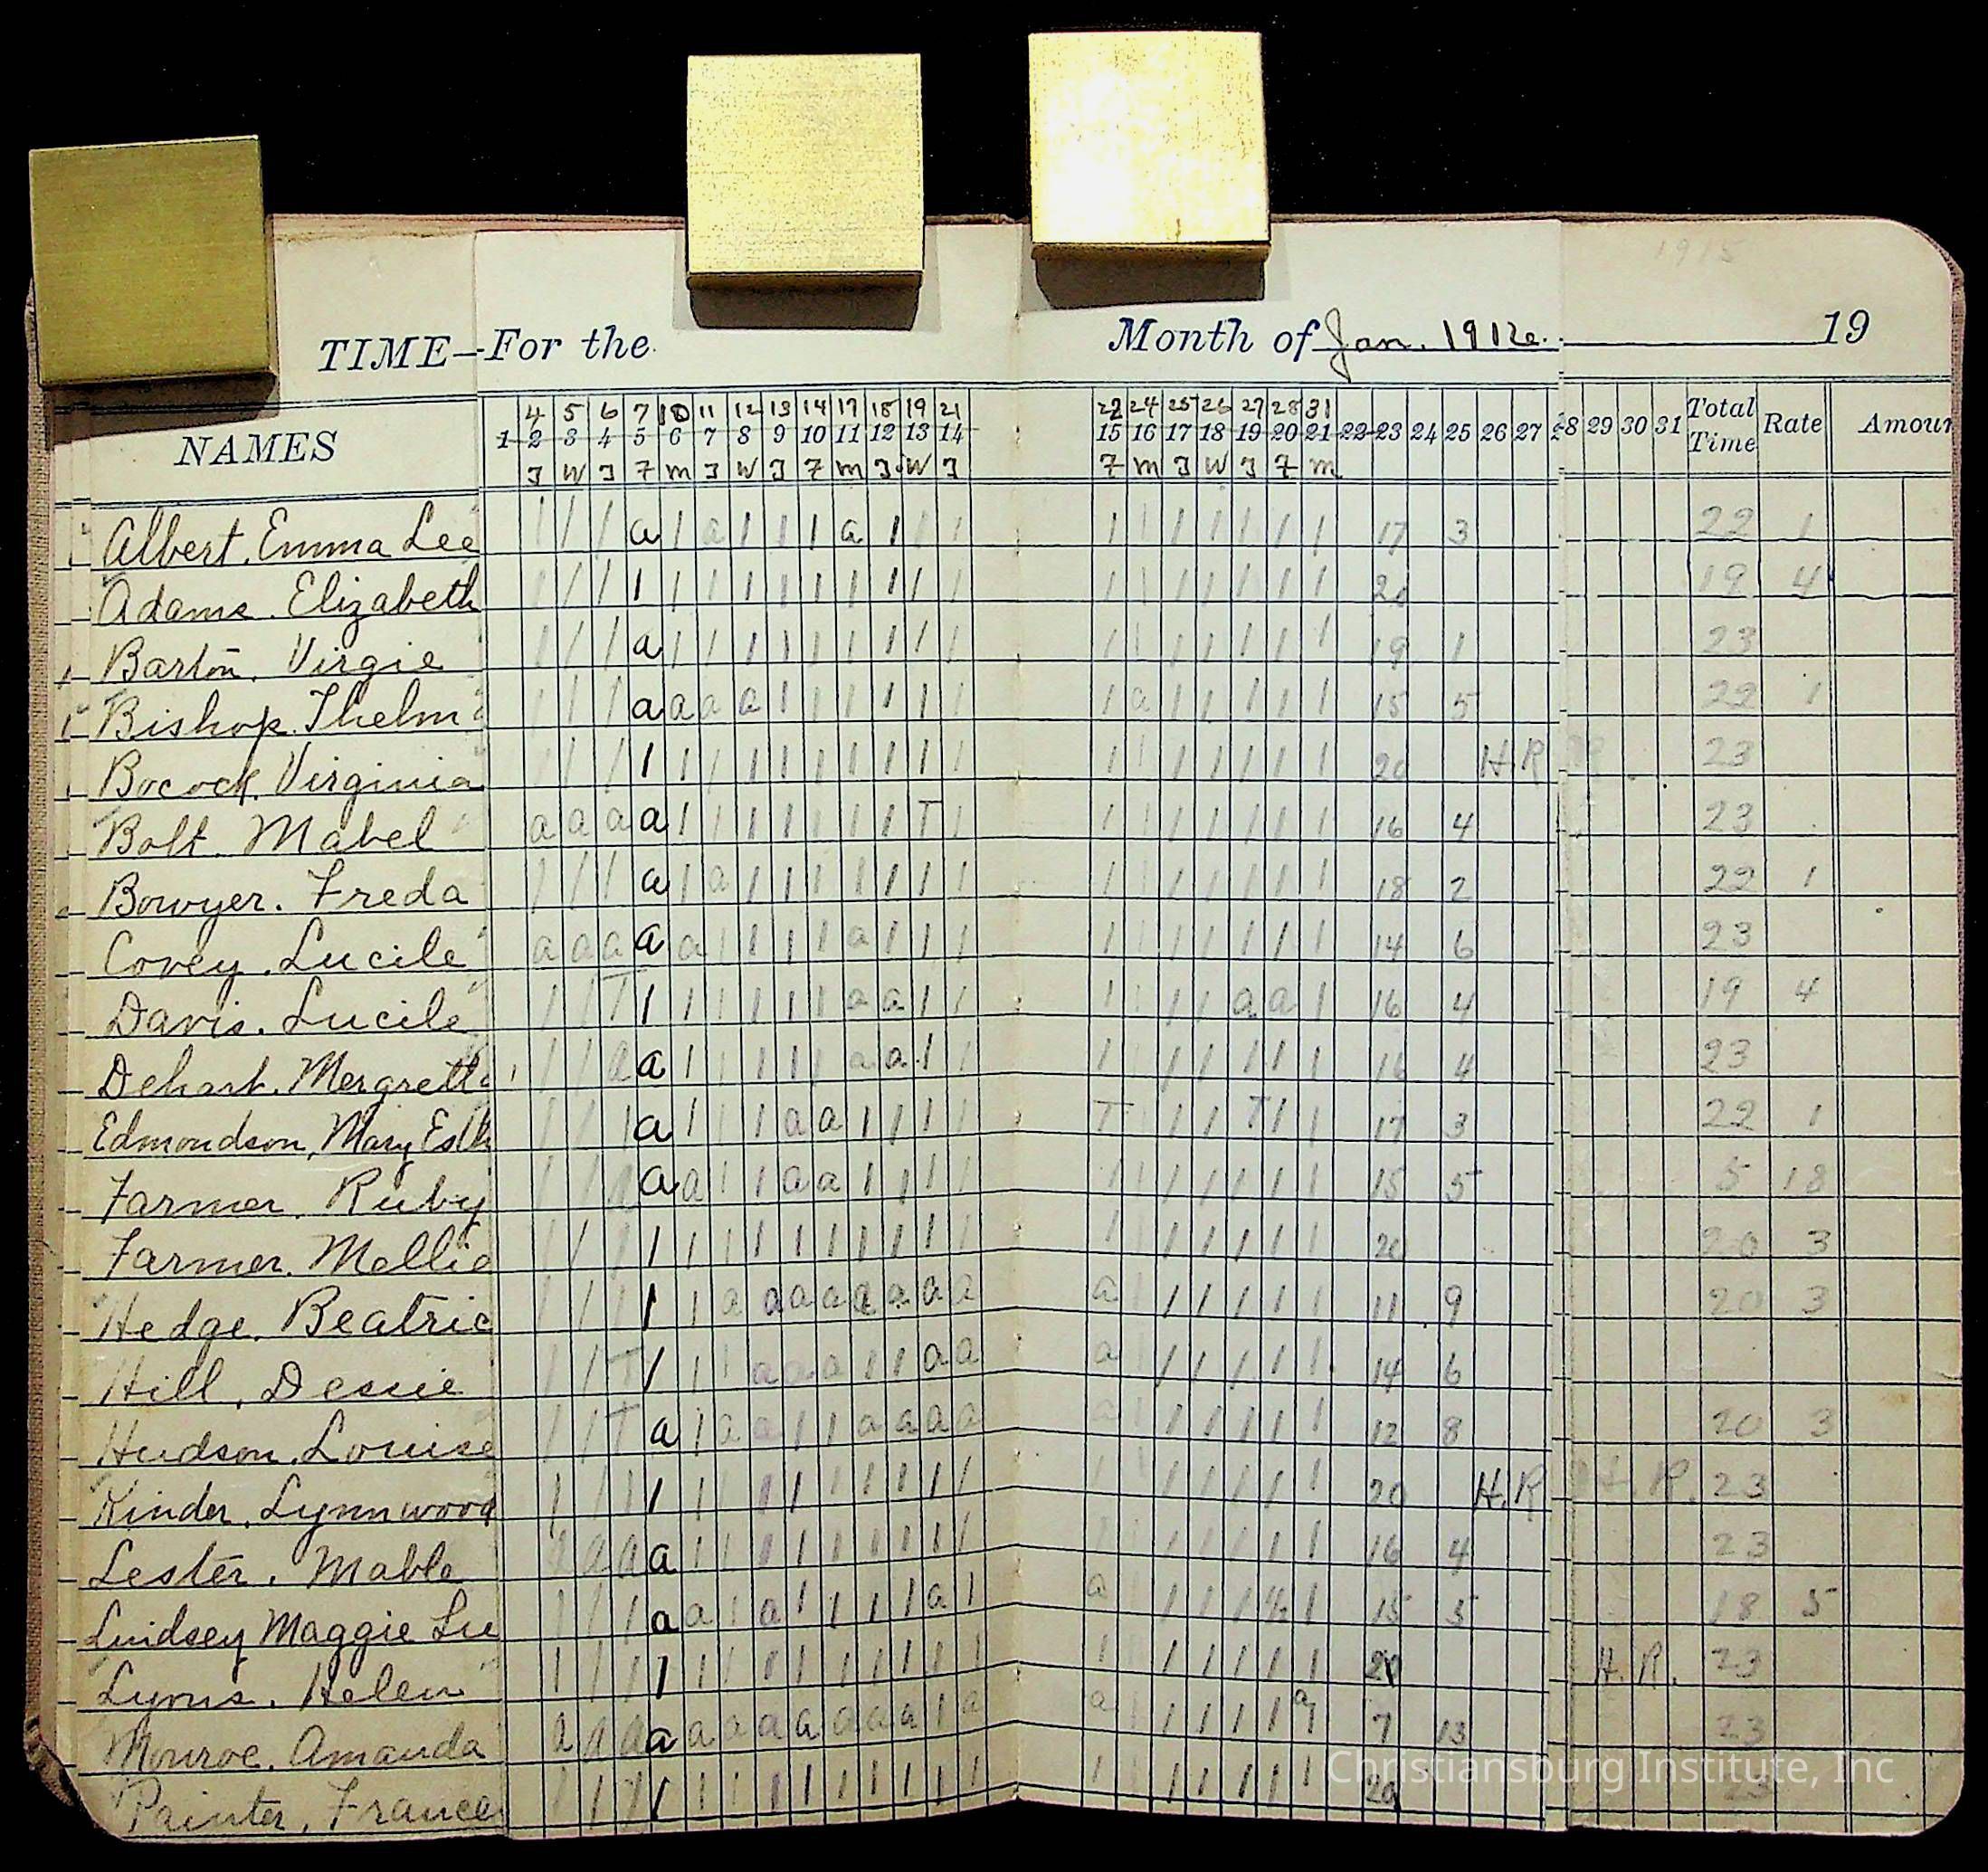 1915
TIME—For the Month of Jan. 1916. 19
4 5 6 7 10 11 12 13 14 17 18 19 21 22 24 25 26 27 28 31
NAMES 1 2 3 4 5 6 7 8 9 10 11 12 13 14 15 16 17 18 19 20 21 22 23 24 25 26 27 28 29 30 31 Total Time Rate Amoun
J W J F M J W J F M J W J F M J W J F M
Albert, Emma Lee / / / a / a / / / a / / / / / / / / / / 17 3 22 1
Adams, Elizabeth / / / / / / / / / / / / / / / / / / / / 20 19 4
Barton, Virgie / / / a / / / / / / / / / / / / / / / / 19 1 23
Bishop, Thelma / / / a a a a / / / / / / / a / / / / / 15 5 22 1
Bocock, Virginia / / / / / / / / / / / / / / / / / / / / 20 H.R 23
Bolt, Mabel a a a a / / / / / / / T / / / / / / / / 16 4 23
Bowyer, Freda / / / a / a / / / / / / / / / / / / / / 18 2 22 1
Covey, Lucile a a a a a / / / / a / / / / / / / / / / 14 6 23
Davis, Lucile / / T / / / / / / a a / / / / / / a a / 16 4 19 4
Dehart, Mergretta / / / a a / / / / / a a / / / / / / / / / 16 4 23
Edmondson, Mary Esth / / / a / / / a a / / / / T / / / T / / 17 3 22 1
Farmer, Ruby / / a a a / / a a / / / / / / / / / / / 15 5 5 18
Farmer, Mellie / / / / / / / / / / / / / / / / / / / / 20 20 3
Hedge, Beatric / / / / / a a a a a a a a a / / / / / / 11 9 20 3
Hill, Dessie / / T / / / a a a / / a a a / / / / / / 14 6
Hudson, Louise / / T a / a a / / a a a a a / / / / / / 12 8 20 3
Kinder, Lynnwood / / / / / / / / / / / / / / / / / / / / 20 H.R H.R. 23
Lester, Mable a a a a / / / / / / / / / / / / / / / / 16 4 23
Lindsey Maggie Lu / / / a a / a / / / / a / a / / / / ½ / 15 5 18 5
Lyons, Helen / / / / / / / / / / / / / / / / / / / / 20 H.R. 23
Monroe, Amanda a a a a a a a a a a a / a a / / / / / a 7 13 23
Painter, Frances / / / / / / / / / / / / / / / / / / / 20 23
Christiansburg Institute, Inc